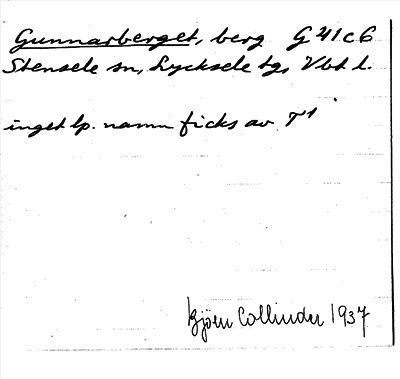 Gunnarberget, berg G 41 c 6
Stensele sn, Lycksele tg, Vbt l.
inget lp. namn ficks av T¹
Björn Collinder 1937